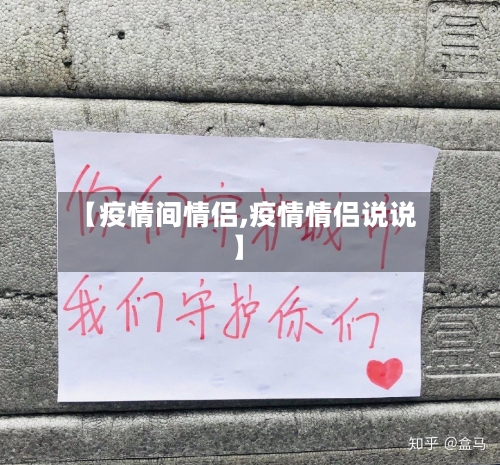 你们守护城市
【疫情间情侣,疫情情侣说说
】
我们守护你们
知乎 @盒马